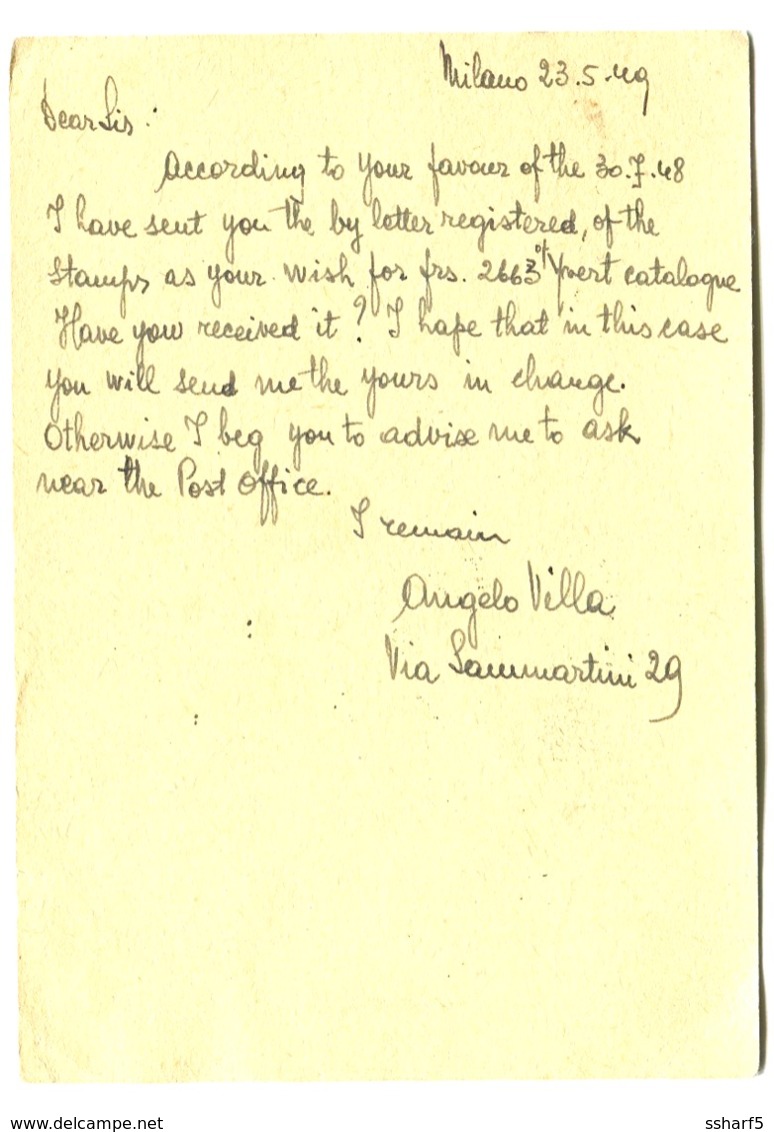 Milano 23.5.49
Dear Sir :
According to your favour of the 30.7.48
I have sent you the by letter registered, of the
stamps as your wish for frs. 2663 of Yvert catalogue
Have you received it? I hape that in this case
you will send me the yours in change.
Otherwise I beg you to advise me to ask
near the Post Office.
I remain
Angelo Villa
Via Sammartini 29
www.delcampe.net
ssharf5